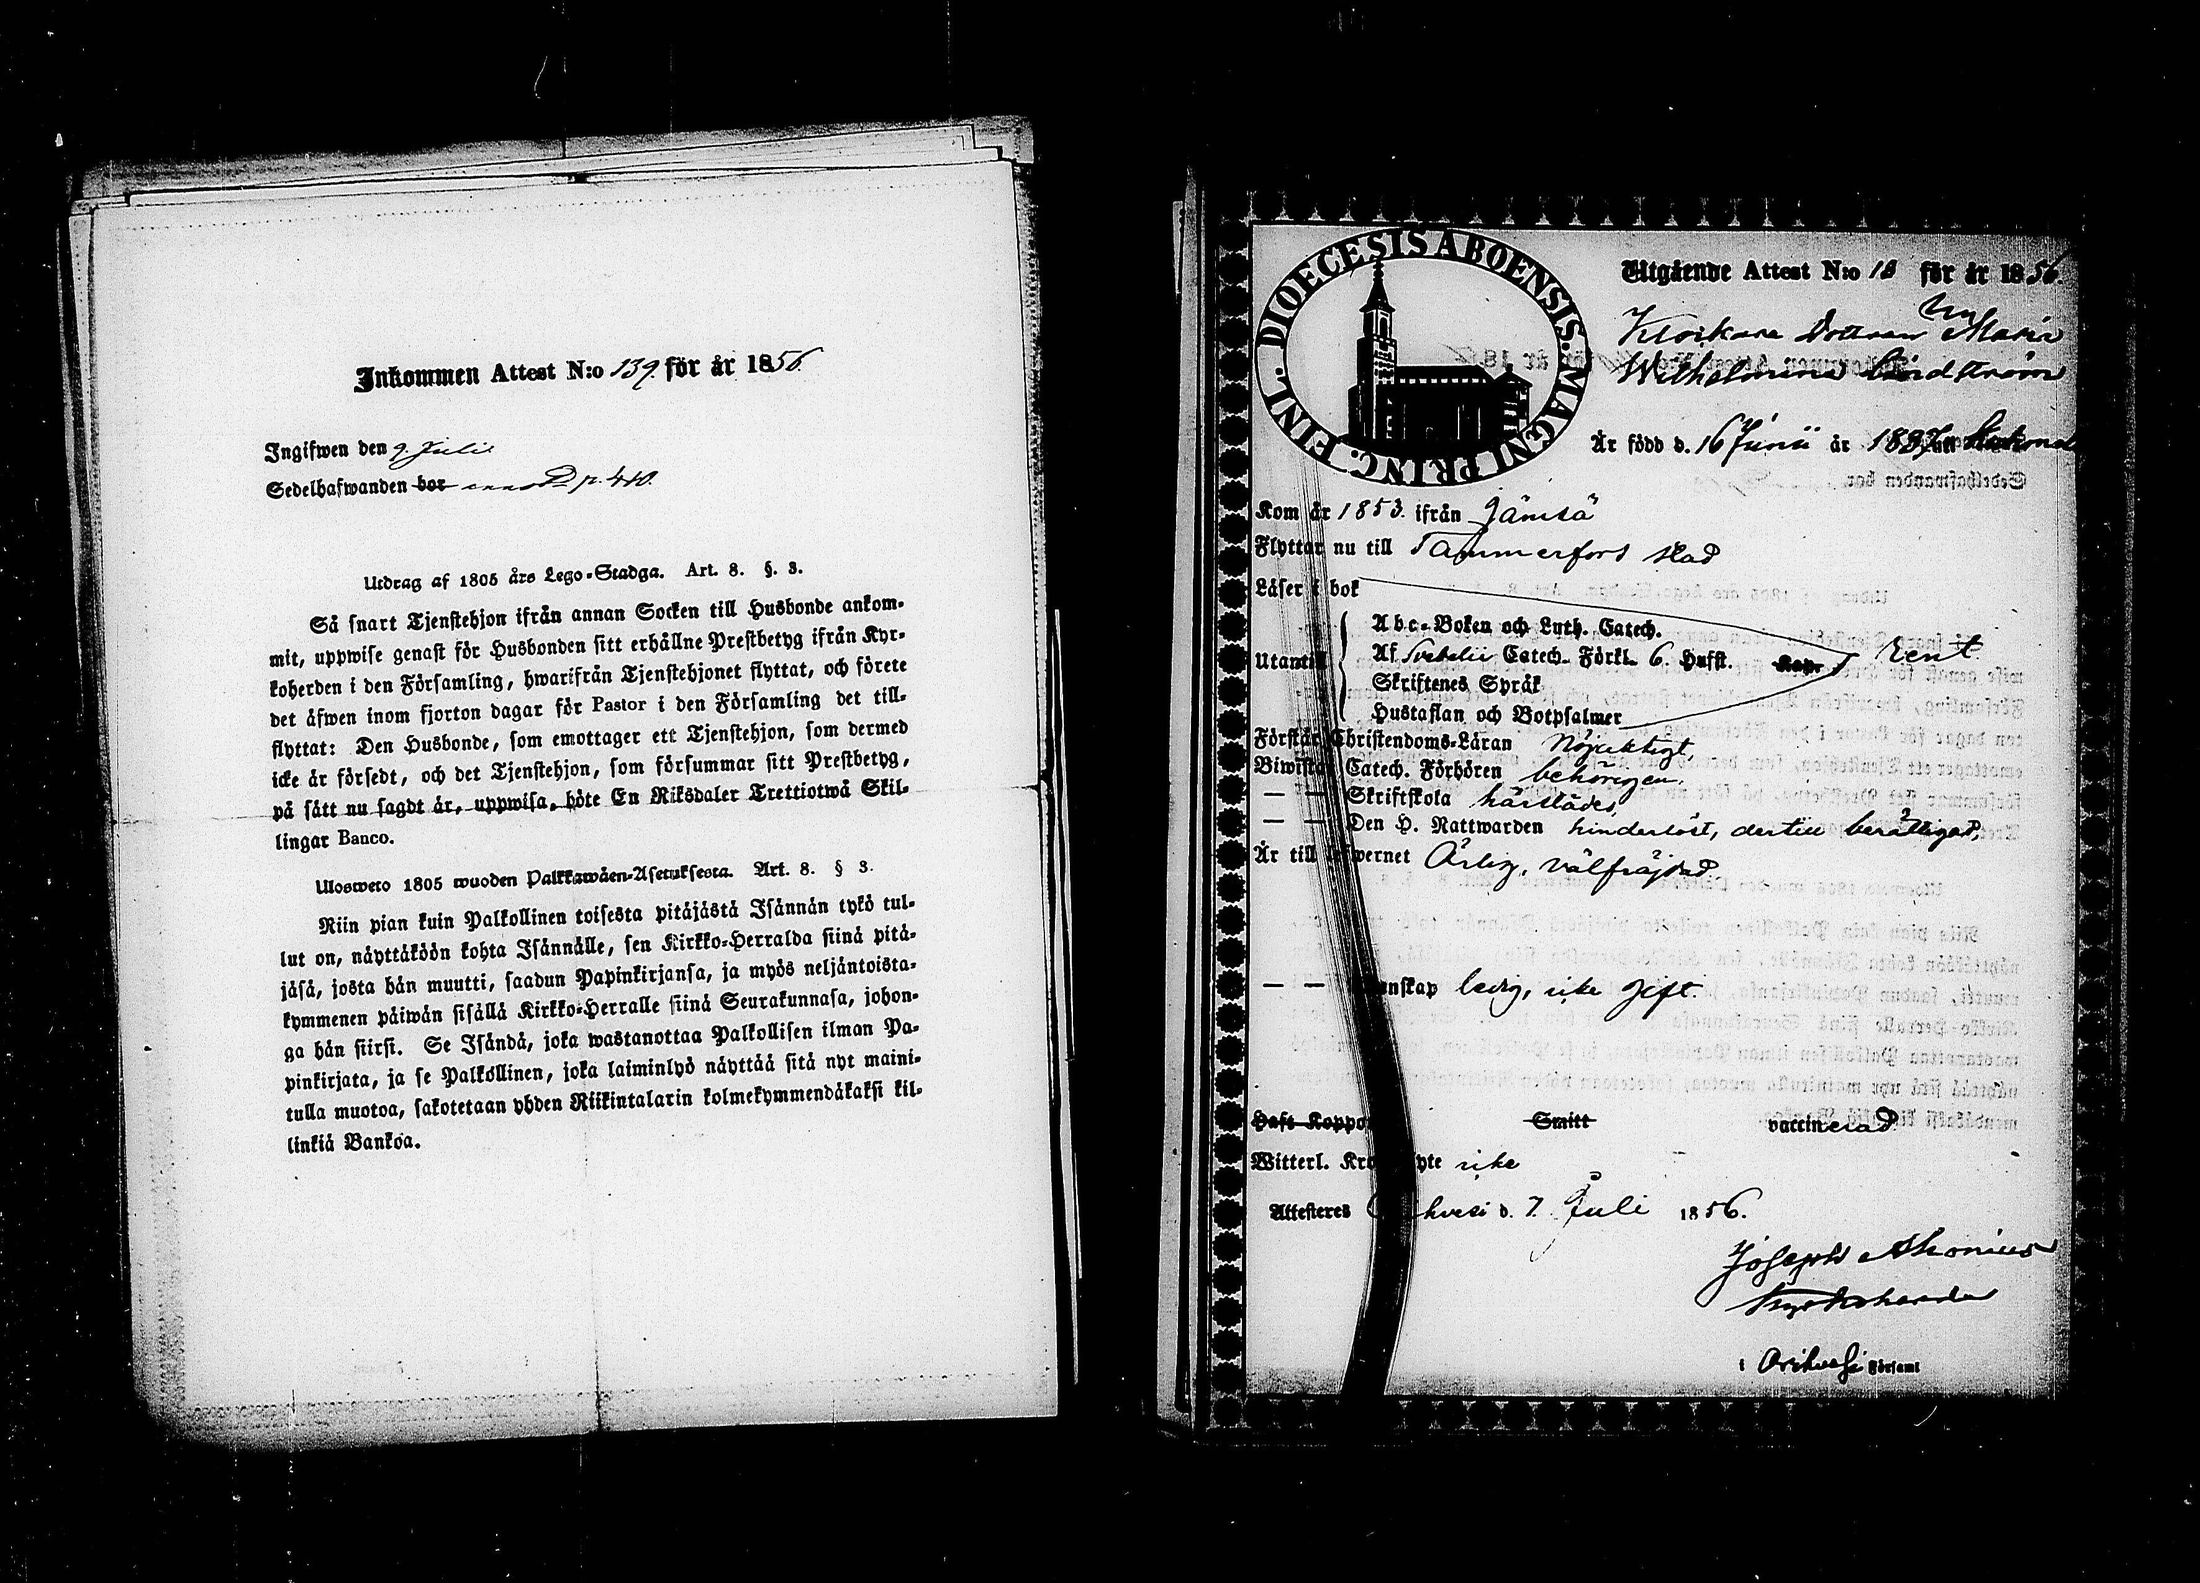 Inkommen Attest N:o 139. för år 1856.
Ingifwen den 9. Julii
Sedelhafwanden bor p. 440.
Utdrag af 1805 års Lego-Stadga. Art. 8. §. 3.
Så snart Tjenstehjon ifrån annan Socken till Husbonde ankom-
mit, uppwise genast för Husbonden sitt erhållne Prestbetyg ifrån Kyr-
koherden i den Församling, hwarifrån Tjenstehjonet flyttat, och förete
det äfwen inom fjorton dagar för Pastor i den Församling det till-
flyttat: Den Husbonde, som emottager ett Tjenstehjon, som dermed
icke är försedt, och det Tjenstehjon, som försummar sitt Prestbetyg,
på sätt nu sagdt är, uppwisa, böte En Riksdaler Trettiotwå Skil-
lingar Banco.
Ulosweto 1805 wuoden Palkkawäen-Asetuksesta. Art. 8. § 3.
Niin pian kuin Palkollinen toisesta pitäjästä Isännän tykö tul-
lut on, näyttäköön kohta Isännälle, sen Kirkko-Herralda siinä pitä-
jäsä, josta hän muutti, saadun Papinkirjansa, ja myös neljäntoista-
kymmenen päiwän sisällä Kirkko-Herralle siinä Seurakunnasa, johon-
ga hän siirsi. Se Isändä, joka wastanottaa Palkollisen ilman Pa-
pinkirjata, ja se Palkollinen, joka laiminlyö näyttää sitä nyt maini-
tulla muotoa, sakotetaan yhden Riikintalarin kolmekymmendäkaksi kil-
linkiä Bankoa.
DIOECESIS ABOENSIS. MAGNI PRINC. FINL.
Utgående Attest N:o 18 för år 1856.
Klockare Dottren Maria
Wilhelmina Lindström
Är född d. 16 Junii år 1837
Kom år 1853. ifrån Jämsä
Flyttar nu till Tammerfors stad
Läser i bok
Abc-Boken och Luth. Catech.
Utantill Af Svebelii Catech. Förkl. 6. Hufst. Kap. Rent
Skriftenes Språk
Hustaflan och Botpsalmer
Förstår Christendoms-Läran Nöjaktigt
Biwistat Catech. Förhören behörigen.
— — Skriftskola härstädes,
— — Den H. Nattwarden hinderlöst, dertill berättigad,
Är till lefwernet Ärlig, välfräjdad
— — enskap ledig, icke gift.
Haft Koppo Smitt vaccinerad
Witterl. Kr yte icke
Attesteres hvesi d. 7. Juli 1856.
Joseph Akonius
Kyrkoherde
i Orihvesi Församl